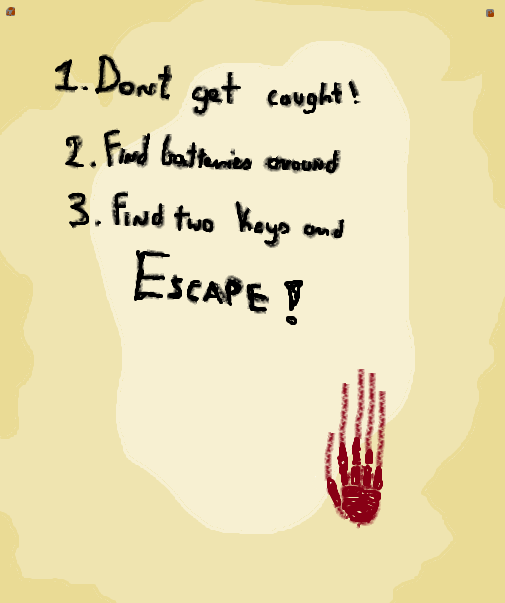 1. Don't get caught!
2. Find batteries around
3. Find two keys and
ESCAPE!